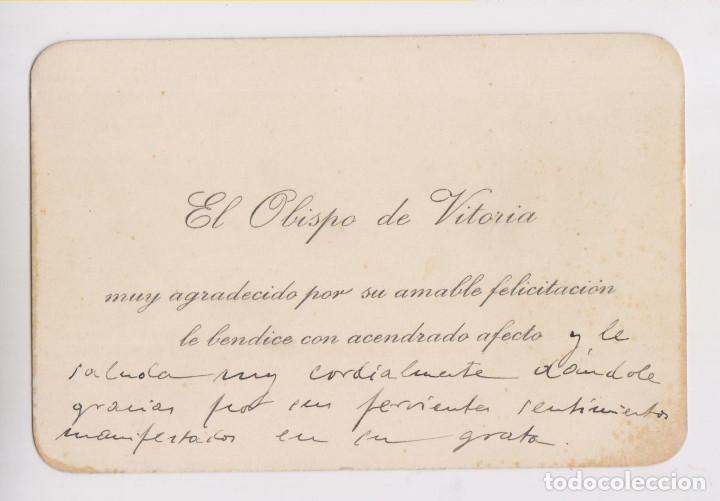 El Obispo de Vitoria
muy agradecido por su amable felicitación
le bendice con acendrado afecto y le
saluda muy cordialmente dándole
gracias por sus fervientes sentimientos
manifestados en su grata.
todocoleccion